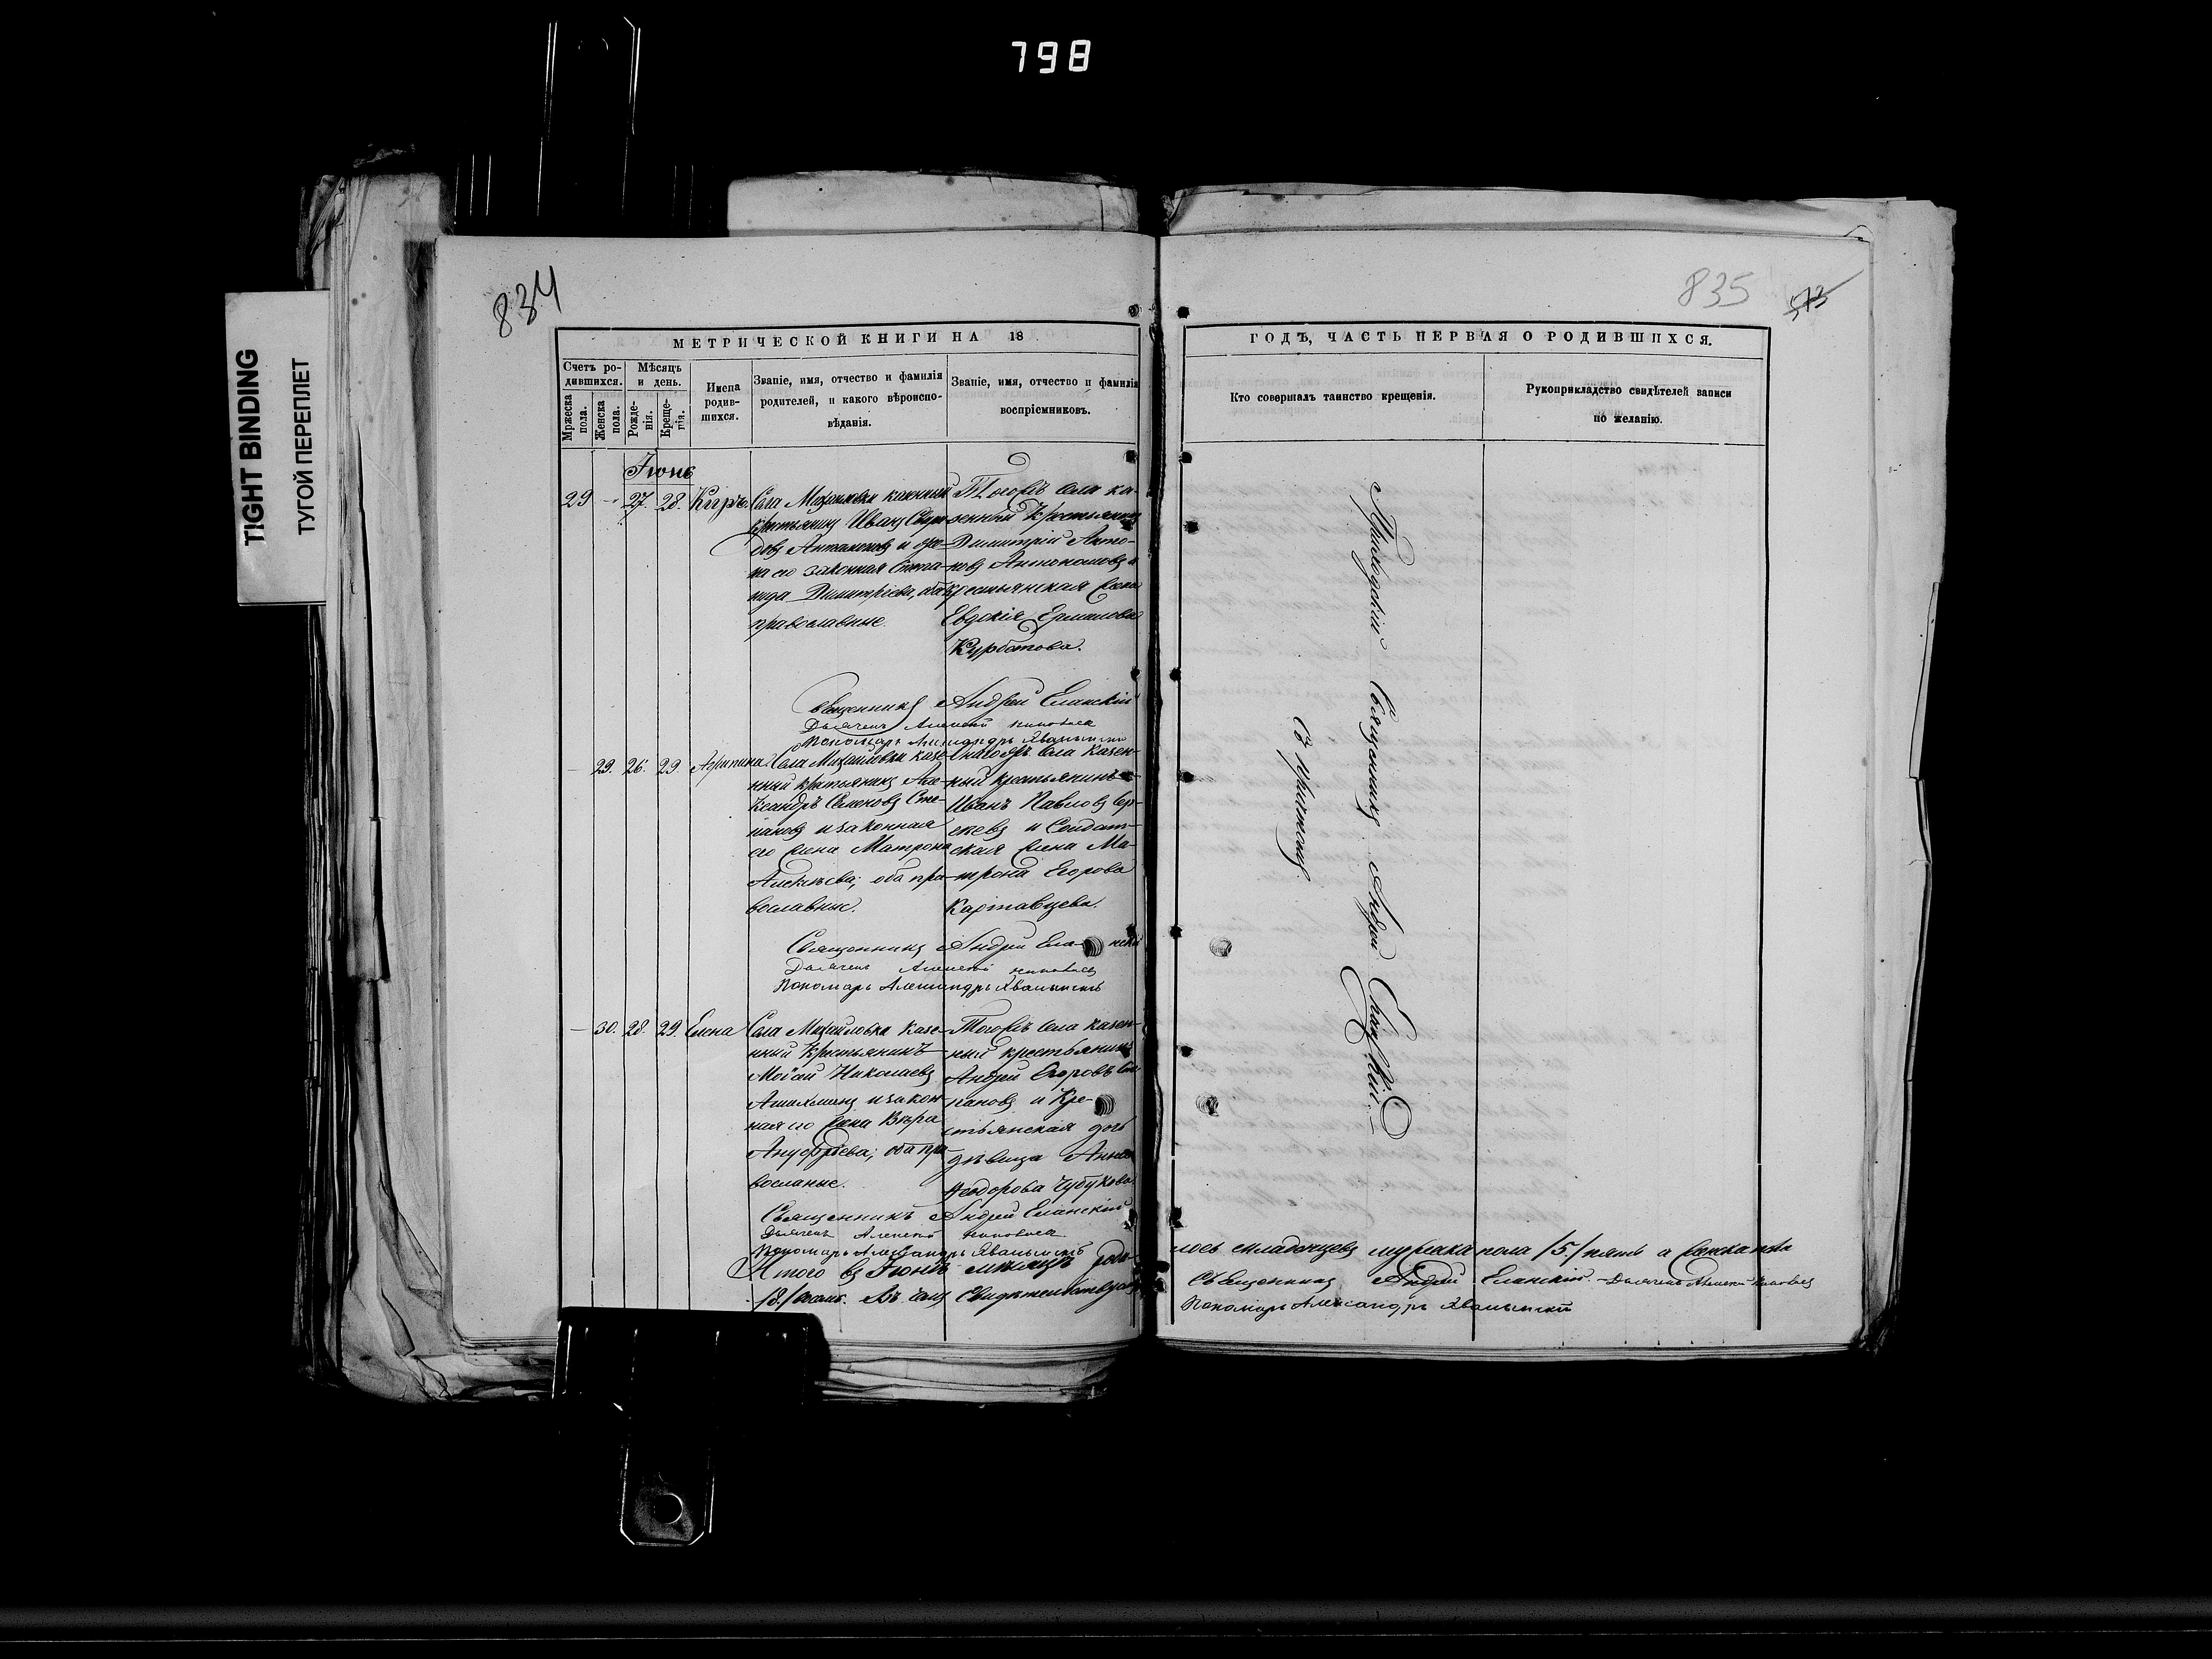 798
TIGHT BINDING
ТУГОЙ ПЕРЕПЛЕТ
834
МЕТРИЧЕСКОЙ КНИГИ НА 18
Счетъ ро-
дившихся.
Мѣсяцъ
и день.
Мужеска
пола.
Женска
пола.
Рожде-
нія.
Креще-
нія.
Имена
родив-
шихся.
Званіе, имя, отчество и фамилія
родителей, и какого вѣроиспо-
вѣданія.
Званіе, имя, отчество и фамилія
воспріемниковъ.
Іюнь
29 27. 28. Киръ
Села Михайловки казенный
крестьянинъ Иванъ
его законная
Димитріева, оба
православные.
Тогожъ села ка-
зенный Крестьянинъ
Димитрій Анто-
новъ и
крестьянская жена
Евдокія
Курбатова.
Священникъ Андрей Еланскій
Дьячекъ Алексей
Пономарь Александръ Хвалынскій
29. 26. 29. Агрипина
Села Михайловки казе-
нный крестьянинъ Але-
ксандръ Семеновъ Сте-
пановъ и законная
его жена Матрона
Алексѣева; оба пра-
вославные.
тогожъ села Казен-
ный крестьянинъ
Иванъ Павловъ Сер-
геевъ и Солдат-
ская жена Ма-
трона Егорова
Картавцева.
Священникъ Андрей Еланскій
Дьячекъ Алексей
Пономарь Александръ Хвалынскій
30. 28. 29. Елена
Села Михайловки Казе-
нный Крестьянинъ
Моісей Николаевъ
и закон-
ная его жена Вѣра
Ануфріева; оба пра-
вославные.
Тогожъ села казен-
ный крестьянинъ
Андрей Егоровъ Сте-
пановъ и Кре-
стьянская дочь
дѣвица Анна
Ѳеодорова Чубукова
Священникъ Андрей Еланскій
Дьячекъ Алексей
Пономарь Александръ Хвалынскій
Итого въ Іюнѣ мѣсяцѣ роди-
Свидѣтельствуемъ
835
573
ГОДЪ, ЧАСТЬ ПЕРВАЯ О РОДИВШИХСЯ.
Кто совершалъ таинство крещенія.
Рукоприкладство свидѣтелей записи
по желанію.
Приходскій Священникъ Андрей Еланскій
Съ причтомъ.
лось младенцевъ мужеска пола /5./ пять а женска
Священникъ Андрей Еланскій. Дьячекъ Алексей
Пономарь Александръ Хвалынскій